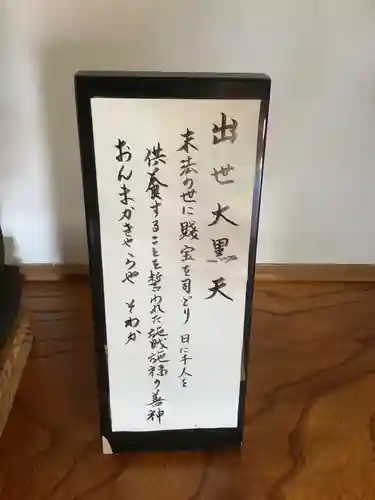 出世大黒天
末法の世に賤宝を司どり 日に千人を
供養することを誓われた施戝施福の善神
おんまかきゃらや そわか